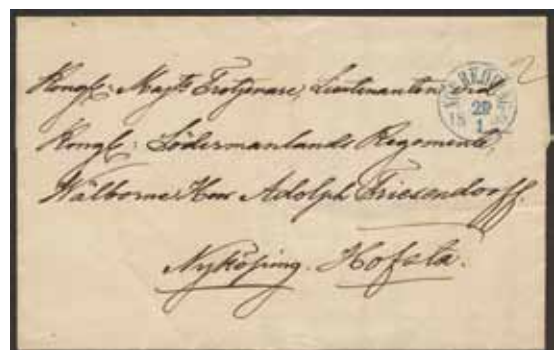 Kongl: Majts Trotjenare, Lieutenanten vid
Kongl: Södermanlands Regemente,
Wälborne Herr Adolph Friesendorff.
Nyköping. Hofsta.
29
1
2